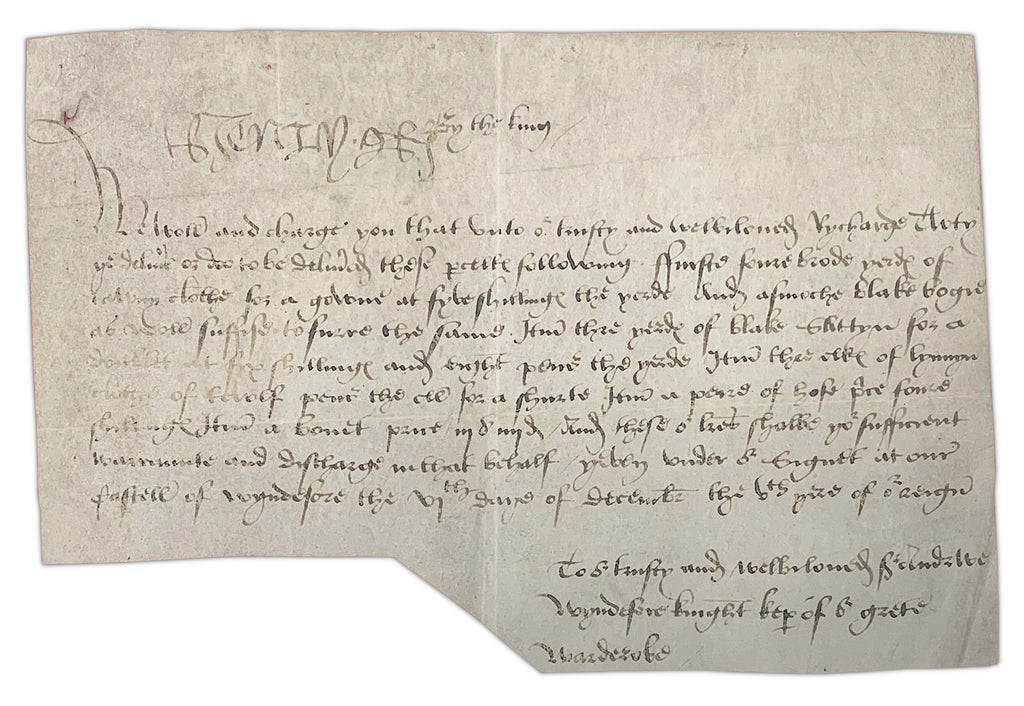 HENRY R By the king
We woll and charge you that unto or trusty and welbiloued Rycharde
ye deliuer or doo to be deliuered these pcelles following. ffurste foure brode yerdes of
tawny clothe for a gowne at fyve shillinges the yerde And asmoche blake bogie
as woll suffise to furre the same. Itm thre yerdes of blake Sattyn for a
doublet at syx shillinges and eight pence the yerde Itm thre elles of lynnyn
clothe of twolf pence the ell for a shurte Itm a peire of hose price foure
shillinges Itm a bonet price iij s iiij d. And these or lres shalbe yor sufficient
warraunte and discharge in that behalf yeven under or Signet at our
Castell of Wyndesore the vjth daye of Decembr the vth yere of or reign
To or trusty and welbiloued Sr Andrewe
Wyndesore knight kepr of or grete
Warderobe